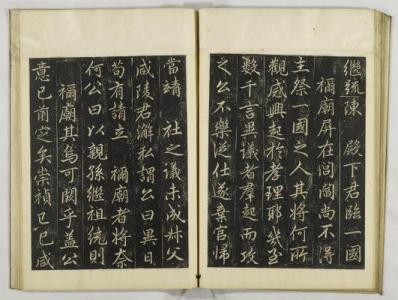 繼統陳　殿下君臨一國
禰廟屏在閭閻尚不得
主祭一國之人其將何所
觀感興起於孝理耶幾至
數千言異議者群起而攻
之公不樂從仕遂棄官歸
當靖　社之議未成叔父
咸陵君澥私謂公曰異日
苟有請立　禰廟者將奈
何公曰以親孫繼祖統則
禰廟其烏可闕乎蓋公
意已前定矣崇禎己巳咸